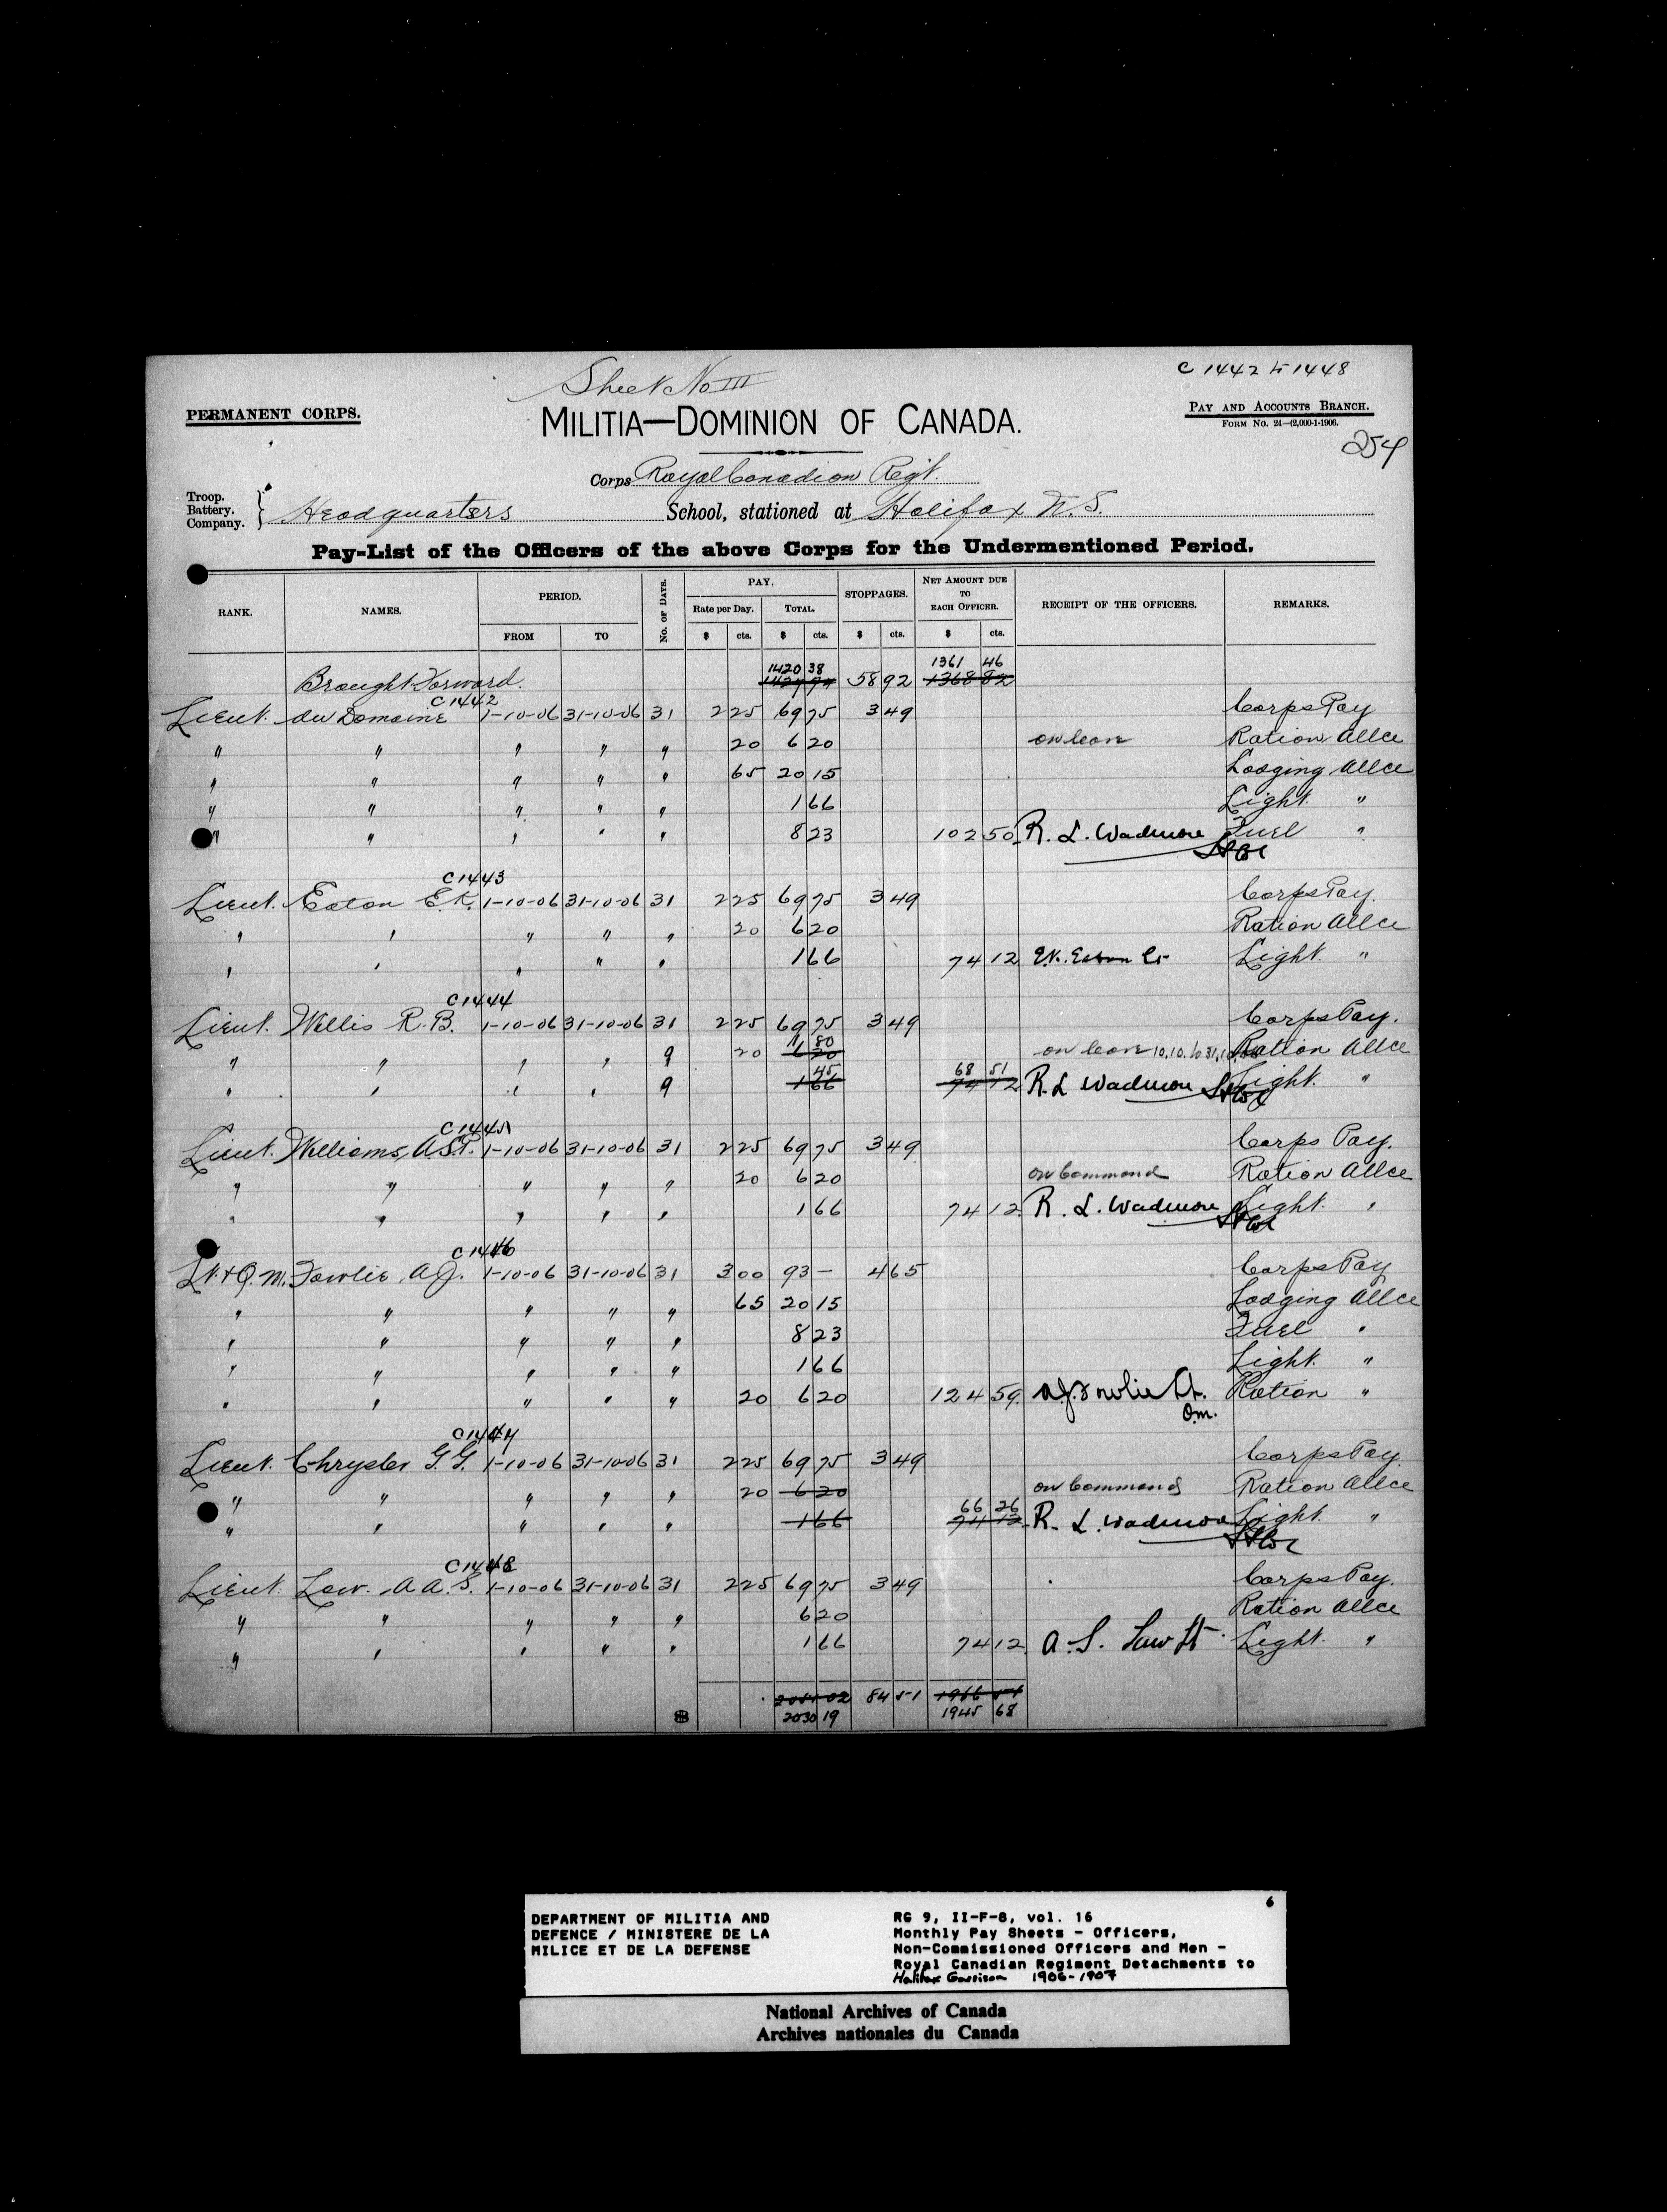 Sheet No III
C 1442 to 1448
PERMANENT CORPS.
MILITIA—DOMINION OF CANADA.
PAY AND ACCOUNTS BRANCH.
FORM No. 24—(2,000-1-1906.
254
Corps Royal Canadian Regt.
Troop.
Battery.
Company.
} Headquarters School, stationed at Halifax N.S.
Pay-List of the Officers of the above Corps for the Undermentioned Period.
RANK. NAMES. PERIOD. FROM TO No. OF DAYS. PAY. Rate per Day. $ cts. TOTAL. $ cts. STOPPAGES. $ cts. NET AMOUNT DUE TO EACH OFFICER. $ cts. RECEIPT OF THE OFFICERS. REMARKS.
1420 38 1361 46
Brought Forward. 58 92 1368 82
C1442
Lieut. du Domaine 1-10-06 31-10-06 31 2 25 69 75 3 49 Corps Pay
" " " " " 20 6 20 on leave Ration Allce
" " " " " 65 20 15 Lodging Allce
" " " " " 1 66 Light "
" " " " " 8 23 102 50 R. L. Wadmore Fuel "
C1443
Lieut. Eaton E.K. 1-10-06 31-10-06 31 2 25 69 75 3 49 Corps Pay.
" " " " " 20 6 20 Ration Allce
" " " " " 1 66 74 12 E.K. Eaton Lt Light "
C1444
Lieut. Willis R.B. 1-10-06 31-10-06 31 2 25 69 75 3 49 Corps Pay.
1 80
" " " " 9 20 6 20 on leave 10.10. to 31.10.06 Ration Allce
45 68 51
" " " " 9 1 66 74 12 R. L Wadmore Light "
C1445
Lieut. Williams, A.St. 1-10-06 31-10-06 31 2 25 69 75 3 49 Corps Pay.
" " " " " 20 6 20 on Command Ration Allce
" " " " " 1 66 74 12 R. L. Wadmore Light "
C1446
Lt. & Q.M. Fowlie A.J. 1-10-06 31-10-06 31 3 00 93 — 4 65 Corps Pay
" " " " " 65 20 15 Lodging Allce
" " " " " 8 23 Fuel "
" " " " " 1 66 Light "
" " " " " 20 6 20 124 59 A.J. Fowlie Lt. Ration "
Q.M.
C1447
Lieut. Chrysler G.G. 1-10-06 31-10-06 31 2 25 69 75 3 49 Corps Pay
" " " " " 20 6 20 on Command Ration Allce
66 26
" " " " " 1 66 74 12 R. L. Wadmore Light "
C1448
Lieut. Law. A.A.S. 1-10-06 31-10-06 31 2 25 69 75 3 49 Corps Pay.
" " " " " 6 20 Ration Allce
" " " " " 1 66 74 12 A. S. Law Lt. Light "
2051 02 84 51 1966 51
$ 2030 19 1945 68
6
DEPARTMENT OF MILITIA AND
DEFENCE / MINISTERE DE LA
MILICE ET DE LA DEFENSE
RG 9, II-F-8, vol. 16
Monthly Pay Sheets - Officers,
Non-Commissioned Officers and Men -
Royal Canadian Regiment Detachments to
Halifax Garrison 1906-1907
National Archives of Canada
Archives nationales du Canada